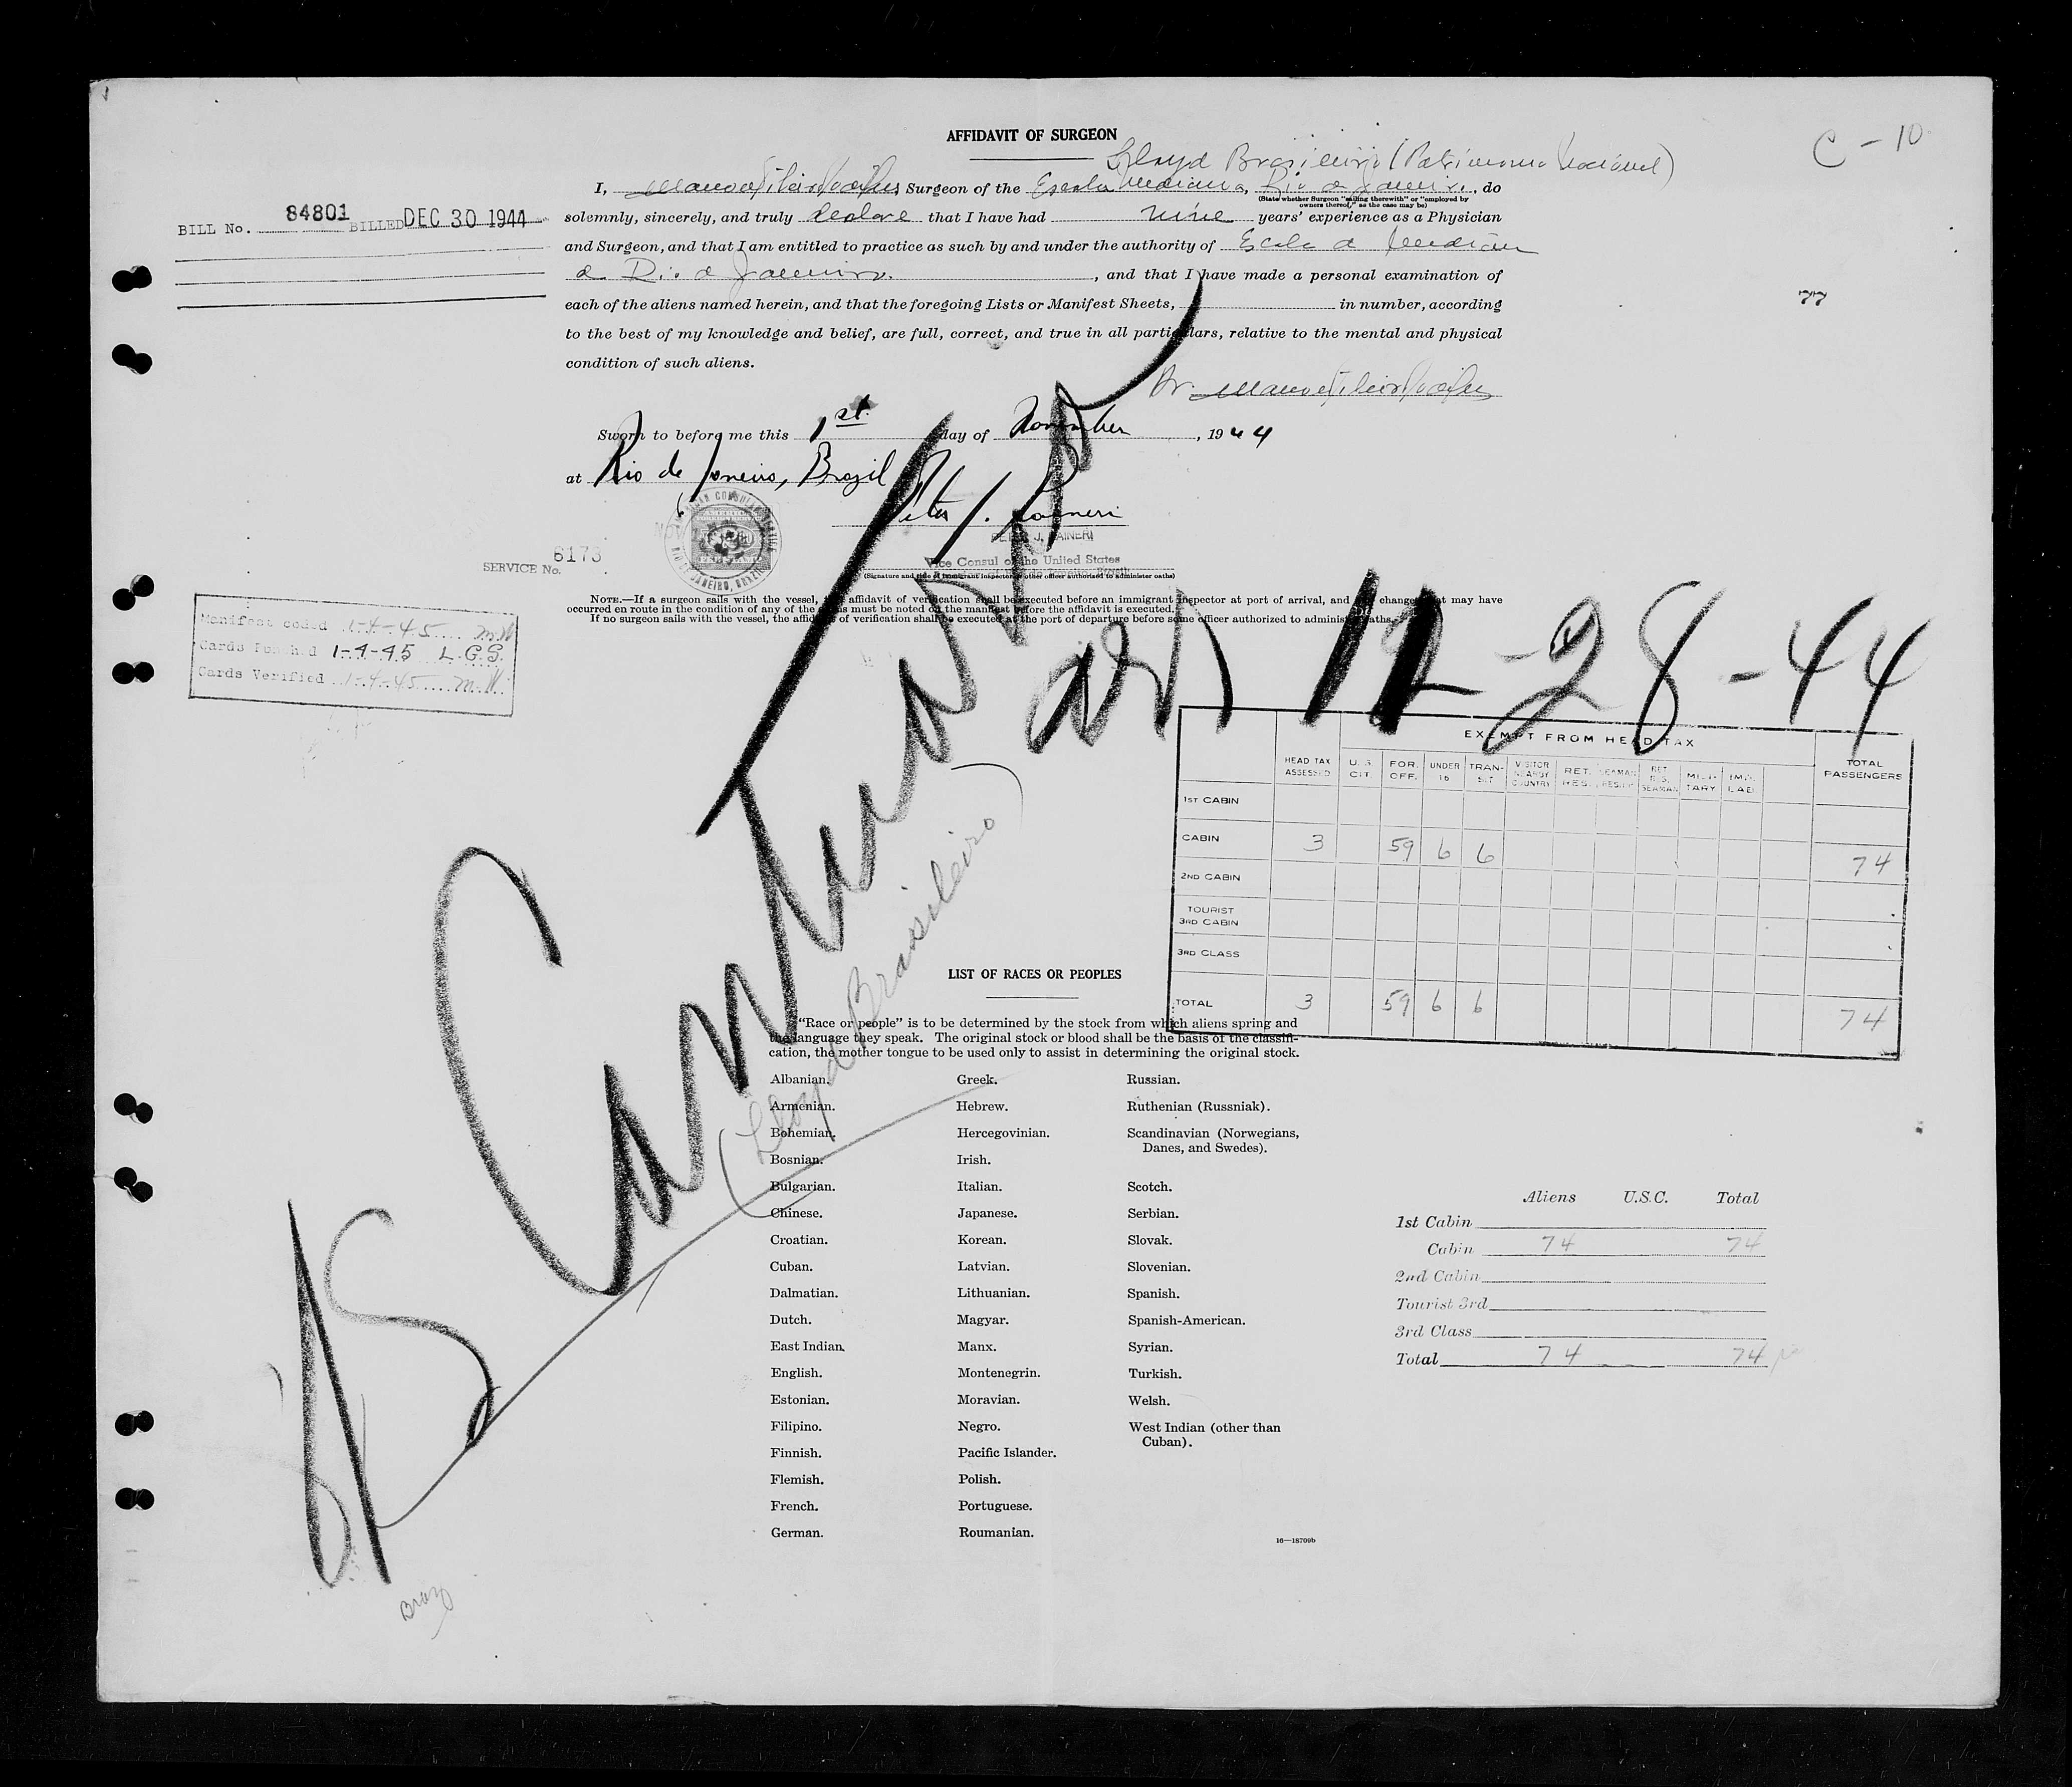 AFFIDAVIT OF SURGEON
C - 10
Lloyd Brasileiro (Patrimonio Nacional)
I, Surgeon of the Escola Rio de Janeiro, do
(State whether Surgeon "sailing therewith" or "employed by
owners thereof," as the case may be)
solemnly, sincerely, and truly declare that I have had nine years' experience as a Physician
and Surgeon, and that I am entitled to practice as such by and under the authority of Escola de
Rio de Janeiro. , and that I have made a personal examination of
each of the aliens named herein, and that the foregoing Lists or Manifest Sheets, in number, according
to the best of my knowledge and belief, are full, correct, and true in all particulars, relative to the mental and physical
condition of such aliens.
BILL No. 84801 BILLED DEC 30 1944
77
Dr.
Sworn to before me this 1st day of November , 1944
at Rio de Janeiro, Brazil
Peter J. Raineri
PETER J. RAINERI
Vice Consul of the United States
(Signature and title of immigrant inspector or other officer authorized to administer oaths)
AMERICAN CONSULAR SERVICE
RIO DE JANEIRO, BRAZIL
SERVICE No. 6173
NOTE.—If a surgeon sails with the vessel, the affidavit of verification shall be executed before an immigrant inspector at port of arrival, and any change that may have
occurred en route in the condition of any of the aliens must be noted on the manifest before the affidavit is executed.
If no surgeon sails with the vessel, the affidavit of verification shall be executed at the port of departure before some officer authorized to administer oaths.
Manifest coded 1-4-45 m.W
Cards Punched 1-4-45 L.G.S.
Cards Verified 1-4-45 m.W.
SS Cantuaria
arr 12-28-44
(Lloyd Brasileiro)
Braz
EXEMPT FROM HEAD TAX
HEAD TAX ASSESSED U.S. CIT. FOR. OFF. UNDER 16 TRANSIT VISITOR NEARBY COUNTRY RET. RES. SEAMAN RET. RES. SEAMAN MILITARY IMG. LAB. TOTAL PASSENGERS
1ST CABIN
CABIN 3 59 6 6 74
2ND CABIN
TOURIST
3RD CABIN
3RD CLASS
TOTAL 3 59 6 6 74
LIST OF RACES OR PEOPLES
"Race or people" is to be determined by the stock from which aliens spring and
the language they speak. The original stock or blood shall be the basis of the classifi-
cation, the mother tongue to be used only to assist in determining the original stock.
Albanian.
Armenian.
Bohemian.
Bosnian.
Bulgarian.
Chinese.
Croatian.
Cuban.
Dalmatian.
Dutch.
East Indian.
English.
Estonian.
Filipino.
Finnish.
Flemish.
French.
German.
Greek.
Hebrew.
Hercegovinian.
Irish.
Italian.
Japanese.
Korean.
Latvian.
Lithuanian.
Magyar.
Manx.
Montenegrin.
Moravian.
Negro.
Pacific Islander.
Polish.
Portuguese.
Roumanian.
Russian.
Ruthenian (Russniak).
Scandinavian (Norwegians,
Danes, and Swedes).
Scotch.
Serbian.
Slovak.
Slovenian.
Spanish.
Spanish-American.
Syrian.
Turkish.
Welsh.
West Indian (other than
Cuban).
16—18709b
Aliens U.S.C. Total
1st Cabin
Cabin 74 74
2nd Cabin
Tourist 3rd
3rd Class
Total 74 74